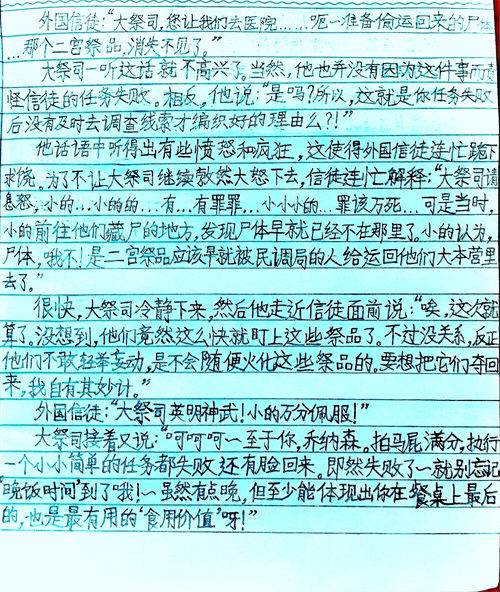 外国信徒:“大祭司,您让我们去医院……呃—准备偷运回来的尸体
…那个二宫祭品,消失不见了。”
大祭司一听这话就不高兴了。当然,他也并没有因为这件事而责
怪信徒的任务失败。相反,他说:“是吗?所以,这就是你任务失败
后没有及时去调查线索才编织好的理由么?!”
他话语中听得出有些愤怒和疯狂,这使得外国信徒连忙跪下
求饶。为了不让大祭司继续勃然大怒下去,信徒连忙解释:“大祭司请
息怒,小的…小的的…有…有罪罪…小小小的…罪该万死…可是当时,
小的前往他们藏尸的地方,发现尸体早就已经不在那里了。小的认为,
尸体,哦不!是二宫祭品应该早就被民调局的人给运回他们大本营里
去了。”
很快,大祭司冷静下来,然后他走近信徒面前说:“唉,这次就
算了。没想到,他们竟然这么快就盯上这些祭品了。不过没关系,反正
他们不敢轻举妄动,是不会随便火化这些祭品的。要想把它们夺回
来,我自有其妙计。”
外国信徒:“大祭司英明神武!小的万分佩服!”
大祭司接着又说:“呵呵呵~至于你,乔纳森。拍马屁满分,执行
一个小小简单的任务都失败还有脸回来。即然失败了~就别忘记
‘晚饭时间’到了哦!~虽然有点晚,但至少能体现出你在餐桌上最后
的,也是最有用的‘食用价值’呀!”